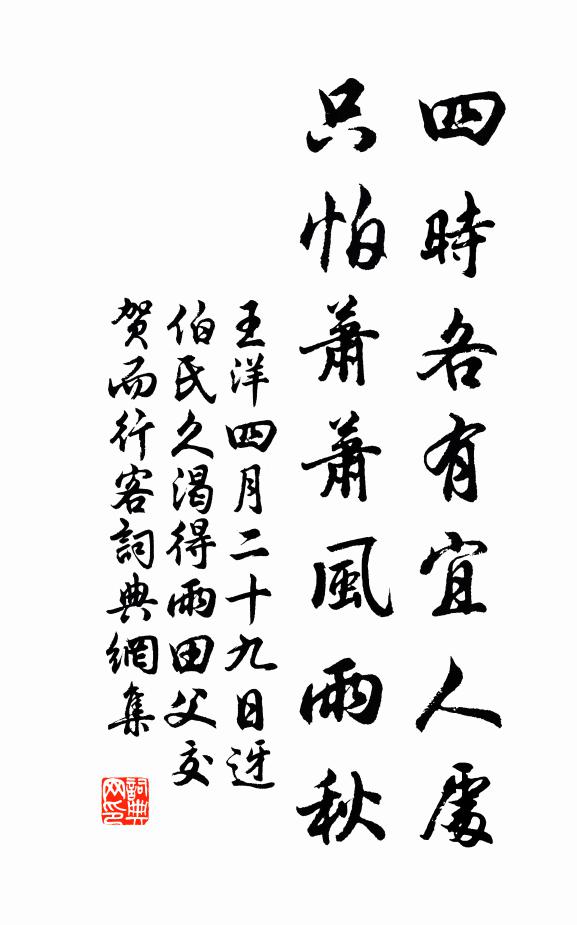 四時各有宜人處
只怕蕭蕭風雨秋
王洋四月二十九日迓
伯氏久渴得雨田父交
賀而行客詞典網集
詞典网印